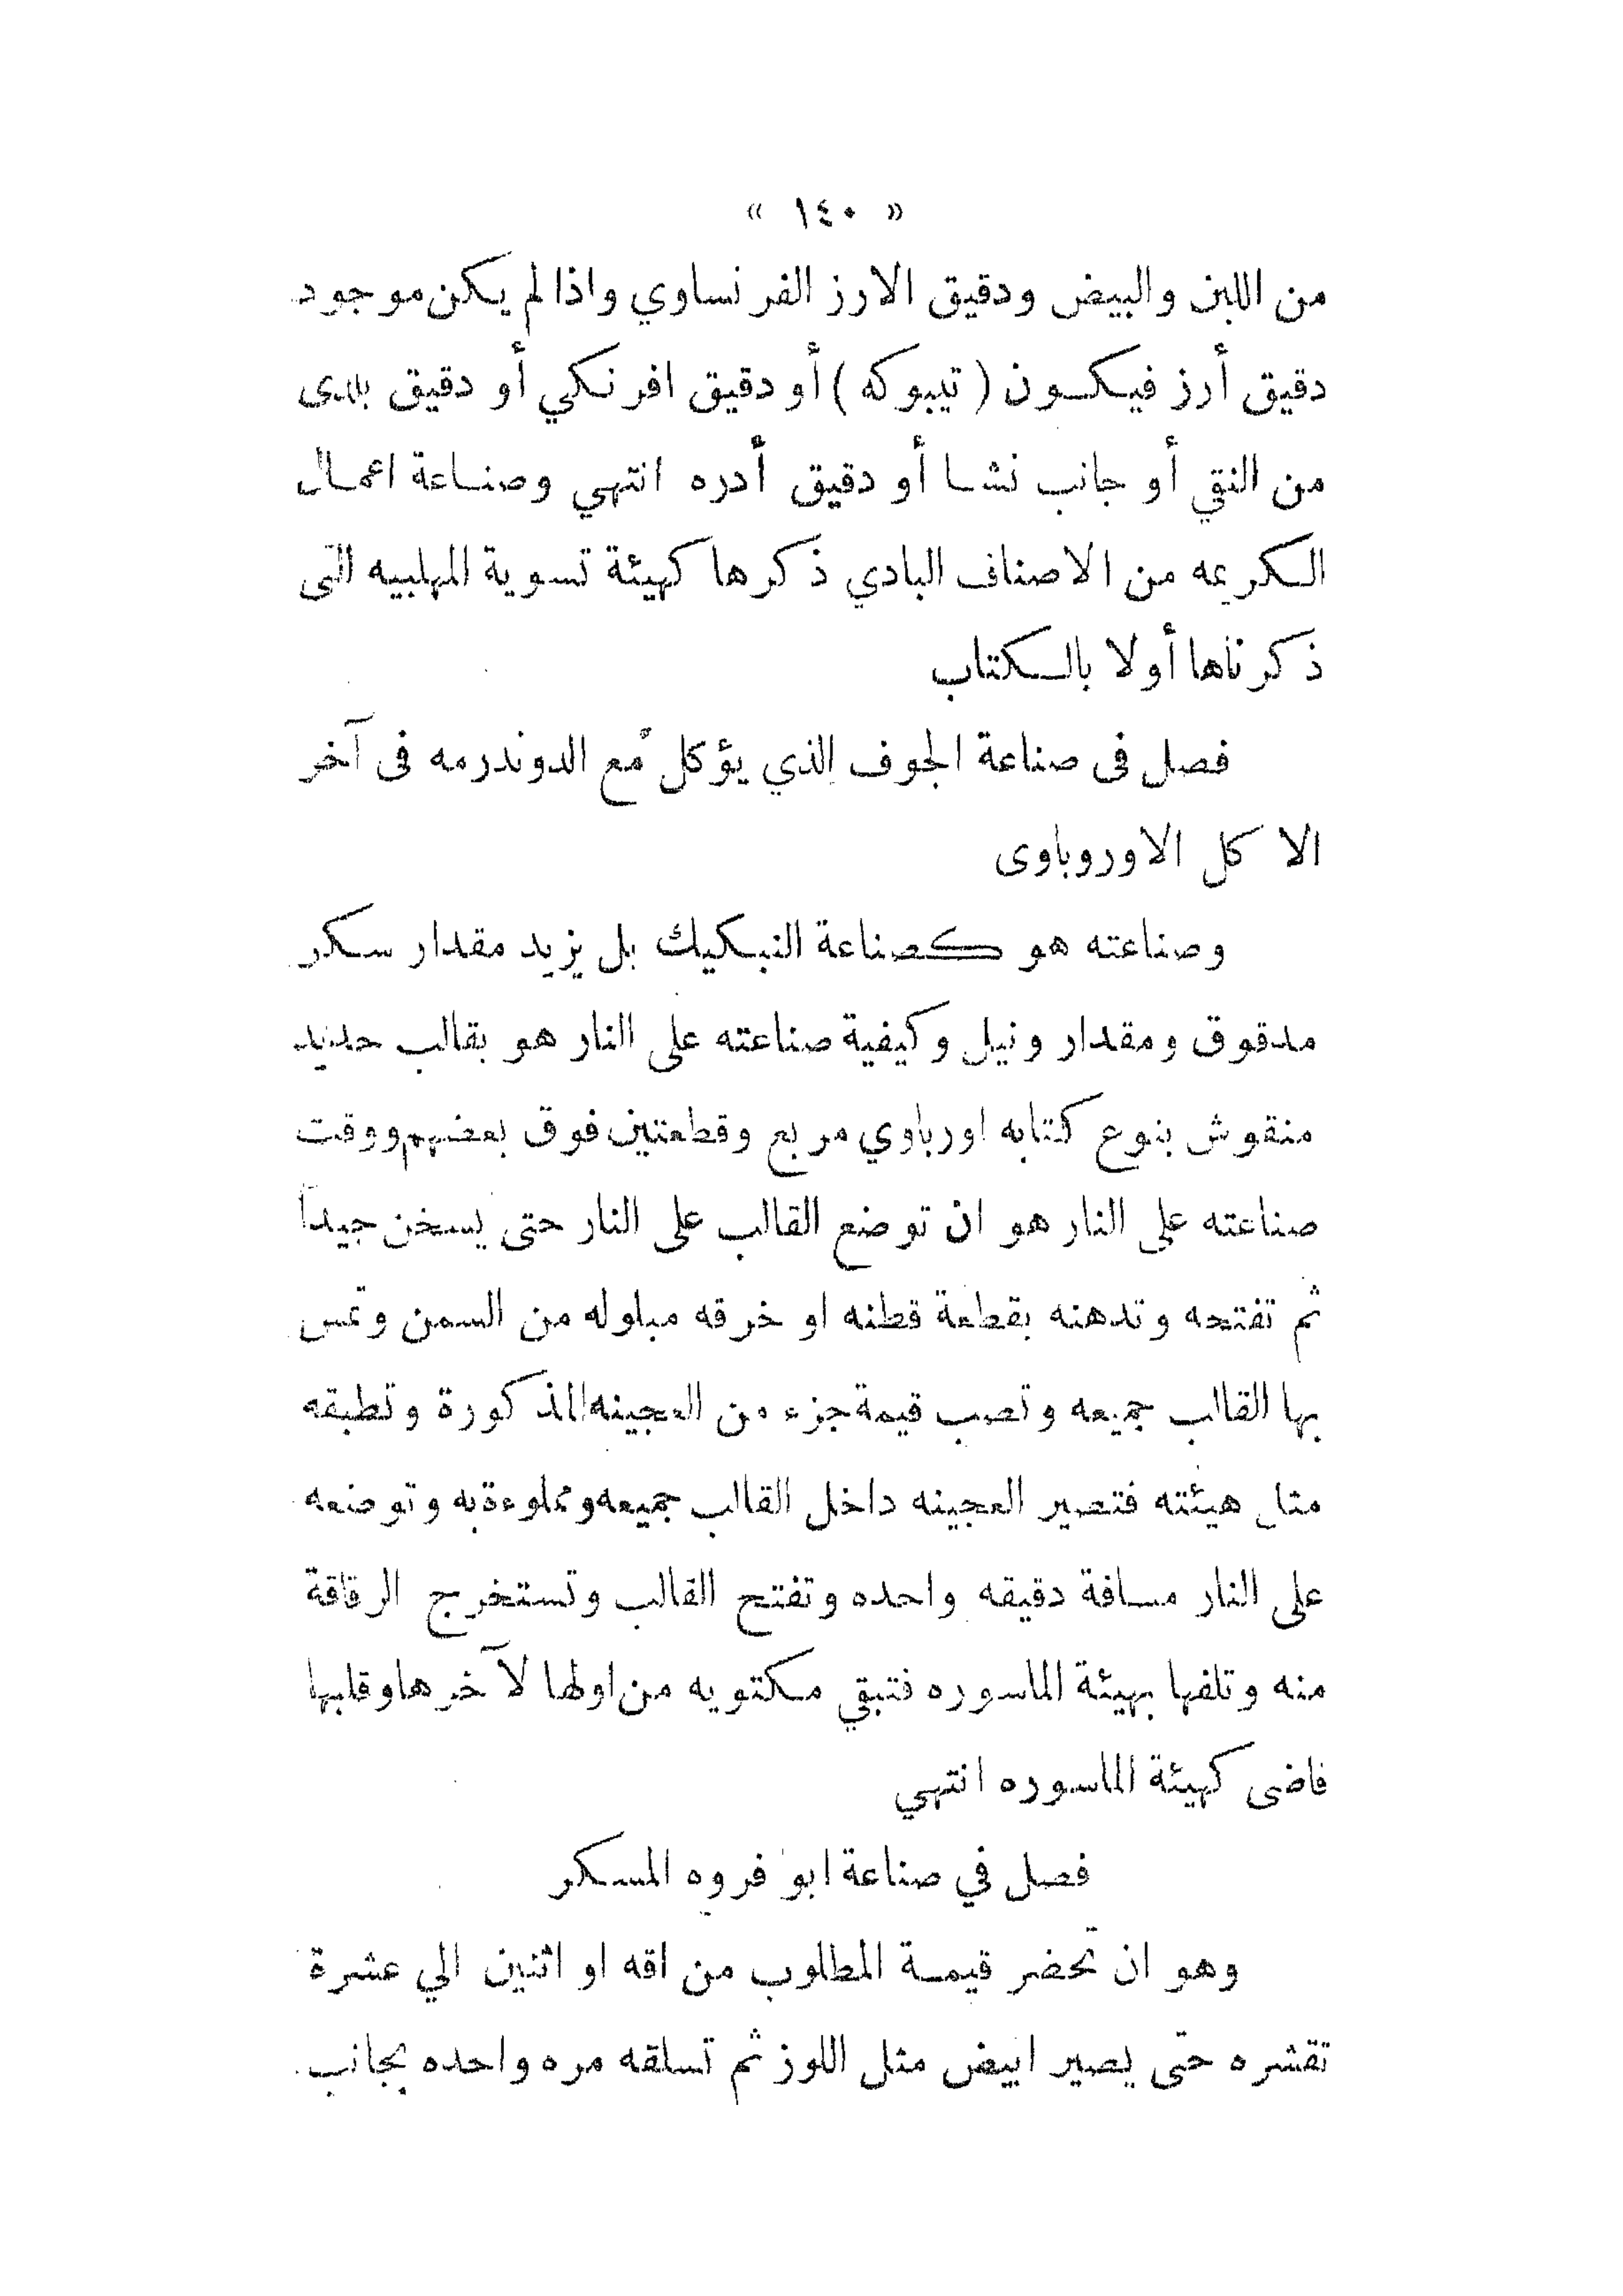 « ١٤٠ »
من اللبن والبيض ودقيق الارز الفرنساوي واذا لم يكن موجود
دقيق أرز فيكون ( تيبوكه ) أو دقيق افرنكي أو دقيق بلدى
من النقي أو جانب نشا أو دقيق أدره انتهي وصناعة اعمال
الكريمه من الاصناف البادي ذكرها كهيئة تسوية المهلبيه التى
ذكرناها أولا بالكتاب
فصل فى صناعة الجوف الذي يؤكل مع الدوندرمه فى آخر
الاكل الاوروباوى
وصناعته هو كصناعة النبكيك بل يزيد مقدار سكر
مدقوق ومقدار ونيل وكيفية صناعته على النار هو بقالب حديد
منقوش بنوع كتابه اورباوي مربع وقطعتين فوق بعضهم ووقت
صناعته على النار هو ان توضع القالب على النار حتى يسخن جيداً
ثم تفتحه وتدهنه بقطعة قطنه او خرقه مبلوله من السمن وتمس
بها القالب جميعه وتصب قيمة جزء من العجينه المذكورة وتطبقه
مثل هيئته فتصير العجينه داخل القالب جميعه ومملوءة به وتوضعه
على النار مسافة دقيقه واحده وتفتح القالب وتستخرج الرقاقة
منه وتلفها بهيئة الماسوره فتبقي مكتويه من اولها لآخرها وقلبها
فاضى كهيئة الماسوره انتهي
فصل في صناعة ابو فروه المسكر
وهو ان تحضر قيمة المطلوب من اقه او اثنين الي عشرة
تقشره حتى يصير ابيض مثل اللوز ثم تسلقه مره واحده بجانب